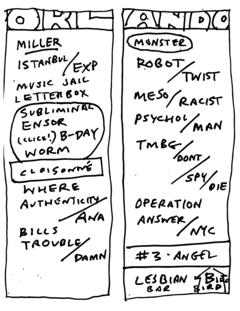 ORL
MILLER
ISTANBUL/EXP
MUSIC JAIL
LETTERBOX
SUBLIMINAL
ENSOR
(CLICK!) B-DAY
WORM
CLOISONNÉ
WHERE
AUTHENTICITY/ANA
BILLS
TROUBLE/DAMN
ANDO
MONSTER
ROBOT/TWIST
MESO/RACIST
PSYCHOL/MAN
TMBG/DONT/SPY/DIE
OPERATION
ANSWER/NYC
#3 · ANGEL
LESBIAN
BAR
BIRD